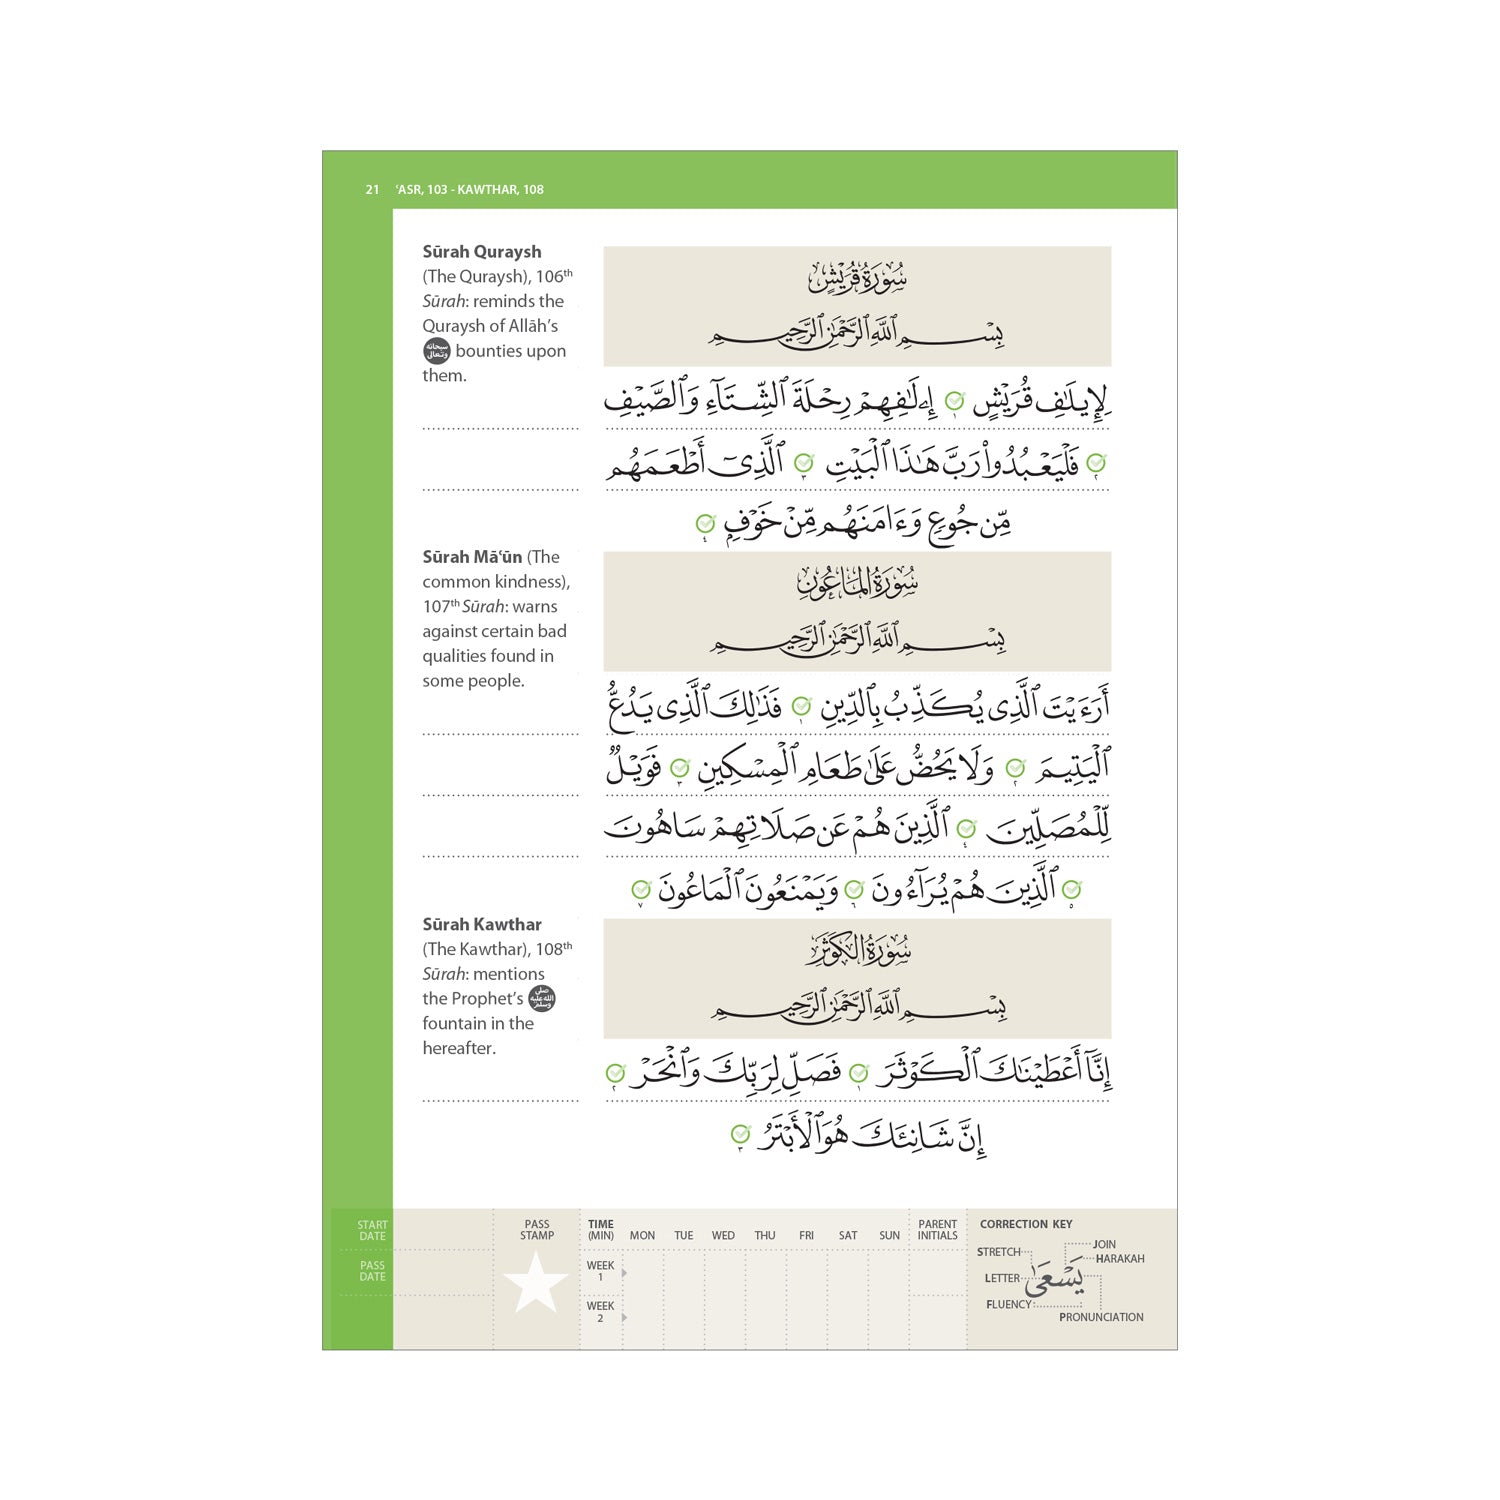 21 ʿASR, 103 - KAWTHAR, 108
Sūrah Quraysh
(The Quraysh), 106th
Sūrah: reminds the
Quraysh of Allāh’s
سبحانه وتعالى bounties upon
them.
سُورَةُ قُرَيْشٍ
بِسْمِ ٱللَّهِ ٱلرَّحْمَٰنِ ٱلرَّحِيمِ
لِإِيلَٰفِ قُرَيْشٍ ١ إِۦلَٰفِهِمْ رِحْلَةَ ٱلشِّتَآءِ وَٱلصَّيْفِ
٢ فَلْيَعْبُدُوا۟ رَبَّ هَٰذَا ٱلْبَيْتِ ٣ ٱلَّذِىٓ أَطْعَمَهُم
مِّن جُوعٍ وَءَامَنَهُم مِّنْ خَوْفٍۭ ٤
Sūrah Māʿūn (The
common kindness),
107th Sūrah: warns
against certain bad
qualities found in
some people.
سُورَةُ المَاعُونِ
بِسْمِ ٱللَّهِ ٱلرَّحْمَٰنِ ٱلرَّحِيمِ
أَرَءَيْتَ ٱلَّذِى يُكَذِّبُ بِٱلدِّينِ ١ فَذَٰلِكَ ٱلَّذِى يَدُعُّ
ٱلْيَتِيمَ ٢ وَلَا يَحُضُّ عَلَىٰ طَعَامِ ٱلْمِسْكِينِ ٣ فَوَيْلٌ
لِّلْمُصَلِّينَ ٤ ٱلَّذِينَ هُمْ عَن صَلَاتِهِمْ سَاهُونَ
٥ ٱلَّذِينَ هُمْ يُرَآءُونَ ٦ وَيَمْنَعُونَ ٱلْمَاعُونَ ٧
Sūrah Kawthar
(The Kawthar), 108th
Sūrah: mentions
the Prophet’s صلى الله عليه وسلم
fountain in the
hereafter.
سُورَةُ الكَوْثَرِ
بِسْمِ ٱللَّهِ ٱلرَّحْمَٰنِ ٱلرَّحِيمِ
إِنَّآ أَعْطَيْنَٰكَ ٱلْكَوْثَرَ ١ فَصَلِّ لِرَبِّكَ وَٱنْحَرْ ٢
إِنَّ شَانِئَكَ هُوَ ٱلْأَبْتَرُ ٣
START
DATE
PASS
DATE
PASS
STAMP
TIME
(MIN) MON TUE WED THU FRI SAT SUN
WEEK
1
WEEK
2
PARENT
INITIALS
CORRECTION KEY
STRETCH
JOIN
HARAKAH
LETTER
يَسْعَىٰ
FLUENCY
PRONUNCIATION